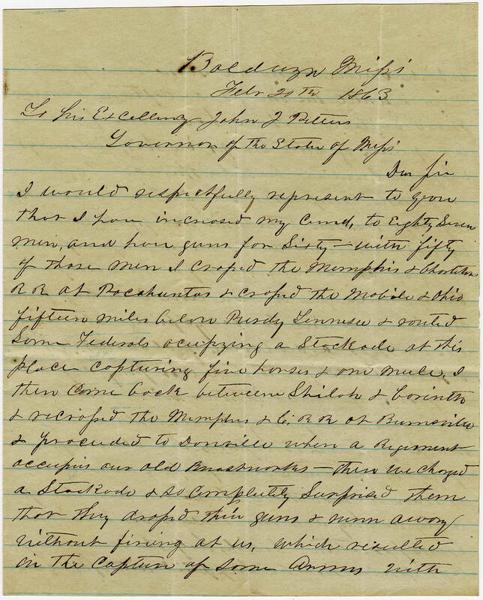 Baldwyn Miss
Feby 20th 1863
To his Excellency John J Pettus
Governor of the State of Miss
Dear Sir
I would respectfully represent to you
that I have increased my Comd, to Eighty Seven
men, and have guns for Sixty – with fifty
of those men I crossed the Memphis & Charleston
R R at Pocahuntas & crossed the Mobile & Ohio
fifteen miles below Purdy Tennessee & routed
Some Federals occupying a Stockade at this
place capturing five horses & one mule, I
then came back between Shiloh & Corinth
& recrossed the Memphis & C. R R at Burnsville
& proceeded to when a Regiment
occupies our old Breastworks – there we charged
a Stockade & so completely Surprised them
that they droped their guns & run away
without firing at us, which resulted
in the Capture of Some Arms with